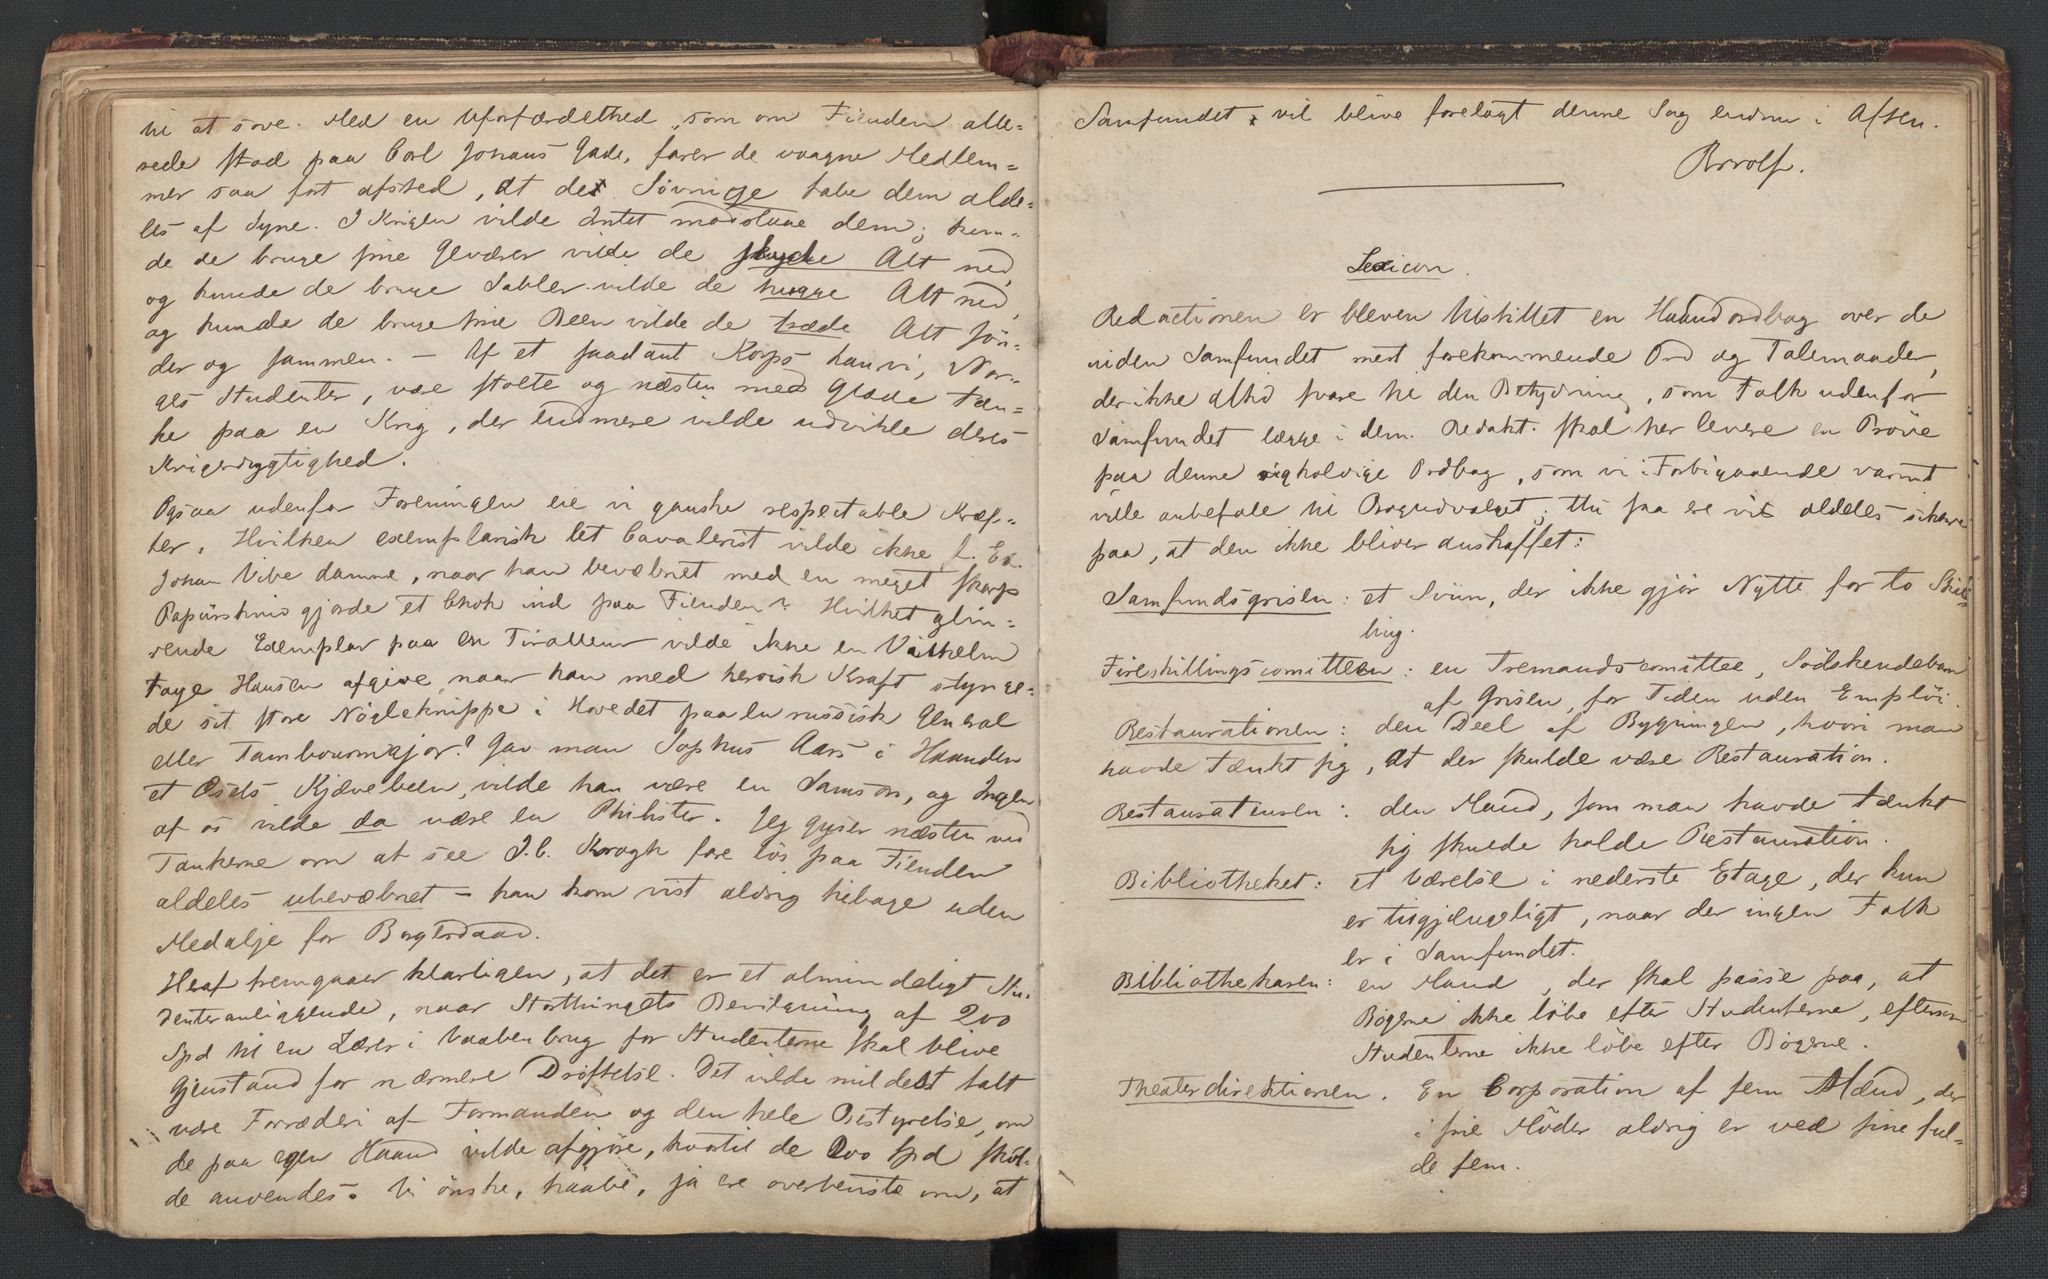 til at sove. Med en Uforfærdethed, som om Fienden alle-
rede stod paa Carl Johans Gade, farer de vaagne Medlem-
mer saa fort afsted, at de Søvnige tabe dem alde-
les af Syne. I Krigen vilde Intet modstaae dem; kun-
de de bruge sine Geværer vilde de skyde Alt ned,
og kunde de bruge Sabler vilde de hugge Alt ned,
og kunde de bruge sine Been vilde de træde Alt søn-
der og sammen. — Af et saadant Korps kan vi, Nor-
ges Studenter, være stolte og næsten med Glæde tæn-
ke paa en Krig, der endmere vilde udvikle deres
Krigerdygtighed.
Ogsaa udenfor Foreningen eie vi ganske respectable Kræf-
ter. Hvilken exemplarisk let Cavalerist vilde ikke f. Ex.
Johan Vibe danne, naar han bevæbnet med en meget skarp
Papirskniv gjorde et Chok ind paa Fienden? Hvilket glim-
rende Exemplar paa en Tirailleur vilde ikke en Vilhelm
Faye Hansen afgive, naar han med heroisk Kraft slynge-
de sit store Nögleknippe i Hovedet paa en russisk General
eller Tambourmajor? Gav man Sophus Aars i Haanden
et Æsels Kjæveben, vilde han være en Samson, og Ingen
af os vilde da være en Philister. Jeg gyser næsten ved
Tankerne om at see J.C. Kragh fare lös paa Fienden
aldeles ubevæbnet — han kom vist aldrig tilbage uden
Medalje for Borgerdaad.
Heraf fremgaaer klarligen, at det er et almindeligt Stu-
denteranliggende, naar Storthingets Bevilgning af 200
Spd til en Lærer i Vaabenbrug for Studenterne skal blive
Gjenstand for nærmere Drøftelse. Det vilde mildest talt
være Forræderi af Formanden og den hele Bestyrelse, om
de paa egen Haand vilde afgjøre, hvortil de 200 Spd skul-
de anvendes. Vi önske, haabe, ja ere overbeviste om, at
Samfundet vil blive forelagt denne Sag endnu i Aften.
Brrolf.
Lexicon.
Redactionen er bleven tilstillet en Haandordbog over de
inden Samfundet mest forekommende Ord og Talemaader,
der ikke altid svare til den Betydning, som Folk udenfor
Samfundet lægge i dem. Redakt. skal her levere en Pröve
paa denne righoldige Ordbog, som vi i Forbigaaende varmt
ville anbefale til Bogudvalget; thi saa ere vi aldeles sikkre
paa, at den ikke bliver anskaffet:
Samfundsgrisen: et Sviin, der ikke gjör Nytte for to Skil-
ling.
Forestillingscomitteen: en Tremandscomittee, Södskendebarn
af Grisen, for Tiden uden Emplöi.
Restaurationen: den Deel af Bygningen, hvori man
havde tænkt sig, at der skulde være Restauration.
Restauratøuren: den Mand, som man havde tænkt
sig skulde holde Restauration.
Bibliotheket: et Værelse i nederste Etage, der kun
er tilgjængeligt, naar der ingen Folk
er i Samfundet.
Bibliothekaren: en Mand, der skal passe paa, at
Bøgerne ikke löbe efter Studenterne, eftersom
Studenterne ikke löbe efter Bögerne.
Theaterdirektionen. En Corporation af fem Mænd, der
i sine Möder aldrig er ved sine ful-
de fem.